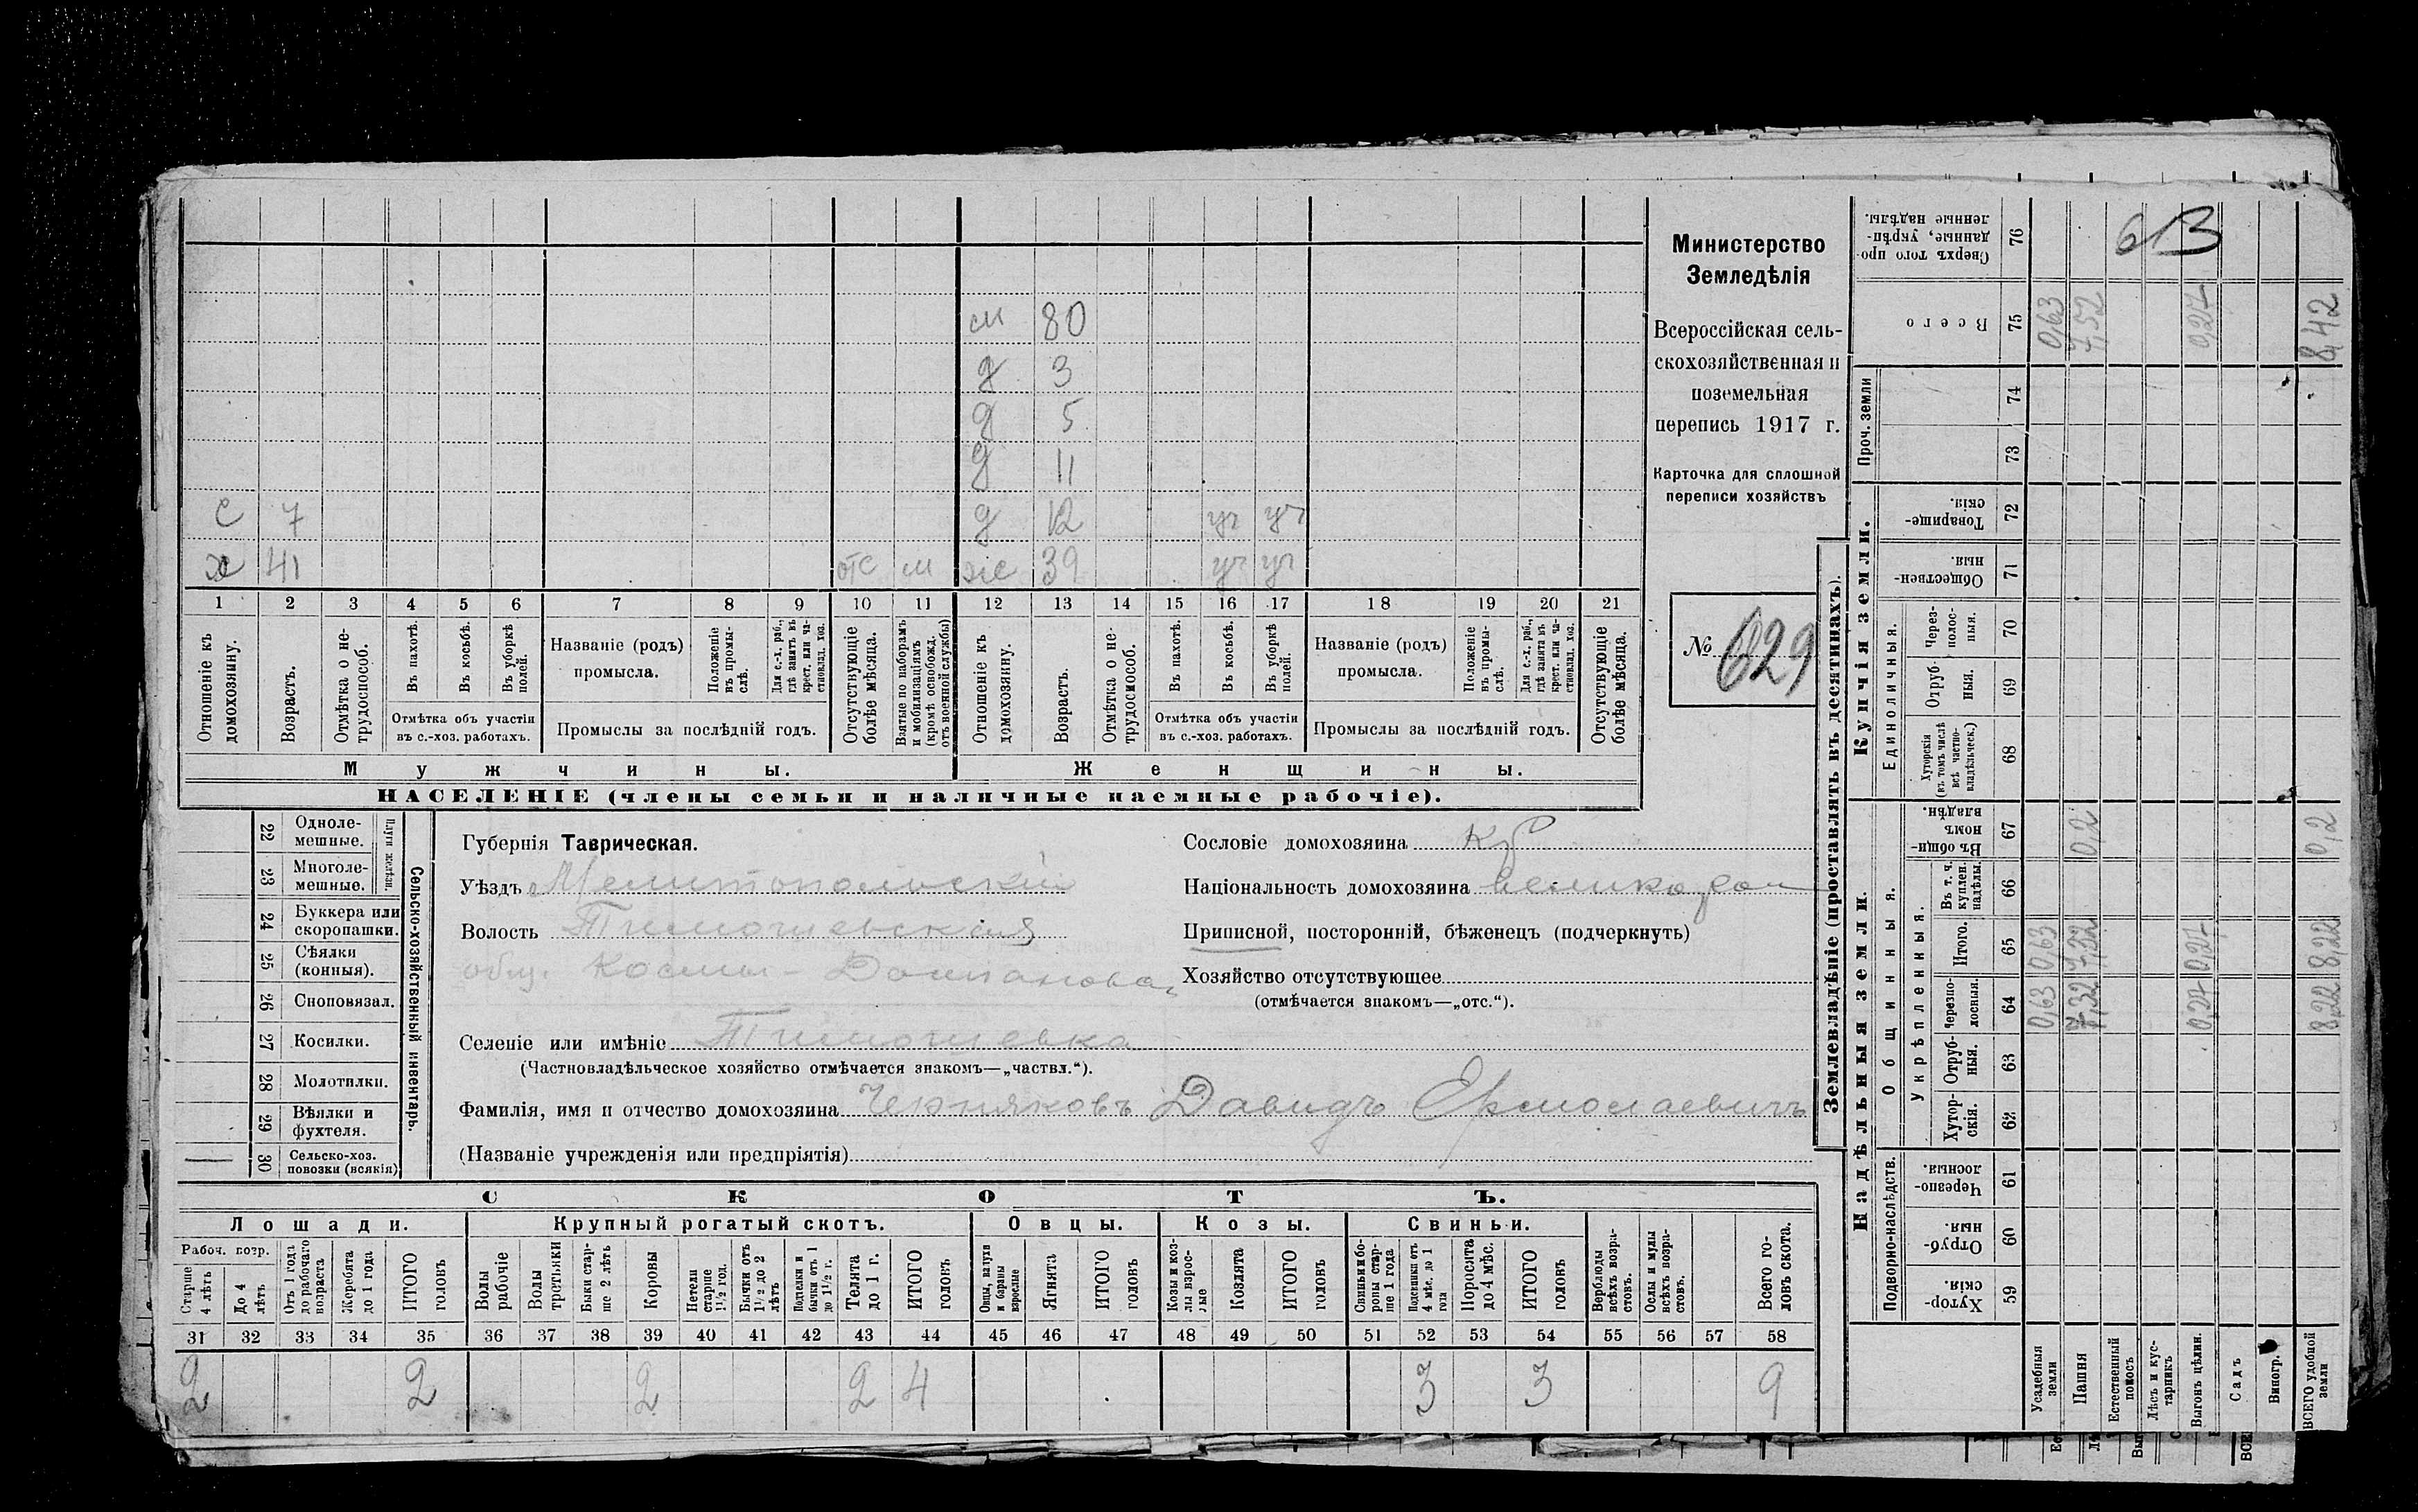 м 80
д 3
д 5
д 11
с 7 д 12 уч уч
х 41 отс м ж 39 уч уч
1 2 3 4 5 6 7 8 9 10 11 12 13 14 15 16 17 18 19 20 21
Отношеніе къ домохозяину.
Возрастъ.
Отмѣтка о не-трудоспособ.
Въ пахотѣ.
Въ косьбѣ.
Въ уборкѣ полей.
Отмѣтка объ участіи
въ с.-хоз. работахъ.
Названіе (родъ)
промысла.
Положеніе въ промы-слѣ.
Для с.-х. раб., гдѣ занятъ въ крест. или ча-стновлад. хоз.
Промыслы за послѣдній годъ.
Отсутствующіе болѣе мѣсяца.
Взятые по наборамъ и мобилизаціямъ (кромѣ освобожд. отъ военной службы)
Отношеніе къ домохозяину.
Возрастъ.
Отмѣтка о не-трудоспособ.
Въ пахотѣ.
Въ косьбѣ.
Въ уборкѣ полей.
Отмѣтка объ участіи
въ с.-хоз. работахъ.
Названіе (родъ)
промысла.
Положеніе въ промы-слѣ.
Для с.-х. раб., гдѣ занята въ крест. или ча-стновлад. хоз.
Промыслы за послѣдній годъ.
Отсутствующіе болѣе мѣсяца.
Мужчины. Женщины.
НАСЕЛЕНІЕ (члены семьи и наличные наемные рабочіе).
Министерство
Земледѣлія
Всероссійская сель-
скохозяйственная и
поземельная
перепись 1917 г.
Карточка для сплошной
переписи хозяйствъ
№ 629
22 Одноле-мешные.
23 Многоле-мешные.
Плуги желѣзн.
24 Буккера или скоропашки.
25 Сѣялки (конныя).
26 Сноповязал.
27 Косилки.
28 Молотилки.
29 Вѣялки и фухтеля.
30 Сельско-хоз. повозки (всякія)
Сельско-хозяйственный инвентарь.
Губернія Таврическая.
Уѣздъ Мелитопольскій
Волость Тимошевская
общ. Космо-Дамиановск
Селеніе или имѣніе Тимошевка
(Частновладѣльческое хозяйство отмѣчается знакомъ—„частвл.“).
Фамилія, имя и отчество домохозяина Черняковъ Давидъ Ермолаевичъ
(Названіе учрежденія или предпріятія)
Сословіе домохозяина Кр
Національность домохозяина великорос
Приписной, посторонній, бѣженецъ (подчеркнуть)
Хозяйство отсутствующее
(отмѣчается знакомъ—„отс.“).
СКОТЪ.
Лошади. Крупный рогатый скотъ. Овцы. Козы. Свиньи.
Рабоч. возр.
Старше 4 лѣтъ
До 4 лѣтъ
Отъ 1 года до рабочаго возраста
Жеребята до 1 года
ИТОГО головъ
Волы рабочіе
Волы третьяки
Быки стар-ше 2 лѣтъ
Коровы
Нетели старше 1½ год.
Бычки отъ 1½ до 2 лѣтъ
Подтелки и бычки отъ 1 до 1½ г.
Телята до 1 г.
ИТОГО головъ
Овцы, валухи и бараны взрослые
Ягнята
ИТОГО головъ
Козы и коз-лы взрос-лые
Козлята
ИТОГО головъ
Свиньи и бо-ровы стар-ше 1 года
Подсвинки отъ 4 мѣс. до 1 года
Поросята до 4 мѣс.
ИТОГО головъ
Верблюды всѣхъ возра-стовъ.
Ослы и мулы всѣхъ возра-стовъ.
Всего го-ловъ скота.
31 32 33 34 35 36 37 38 39 40 41 42 43 44 45 46 47 48 49 50 51 52 53 54 55 56 57 58
2 2 2 2 4 3 3 9
Землевладѣніе (проставлять въ десятинахъ).
613
Сверхъ того про-данные, укрѣп-ленные надѣлы. 76
Всего 75 0,63 7,52 0,27 8,42
Проч. земли 74 73
Купчія земли.
Товарище-скія. 72
Обществен-ныя. 71
Единоличныя.
Через-полос-ныя. 70
Отруб-ныя. 69
Хуторскія (въ томъ числѣ всѣ частно-владѣльческ.) 68
Надѣльныя земли.
Общинныя.
Въ общи-номъ владѣн. 67 0,2 0,2
Укрѣпленныя.
Въ т. ч. куплен. надѣлы. 66
Итого. 65 0,63 7,32 0,27 8,22
Черезпо-лосныя. 64 0,63 7,32 0,27 8,22
Отруб-ныя. 63
Хутор-скія. 62
Подворно-наслѣдств.
Черезпо-лосныя. 61
Отруб-ныя. 60
Хутор-скія. 59
Усадебныя земли
Пашня
Естественный покосъ
Лѣсъ и кус-тарникъ
Выгонъ цѣлин.
Садъ
Виногр.
ВСЕГО удобной земли